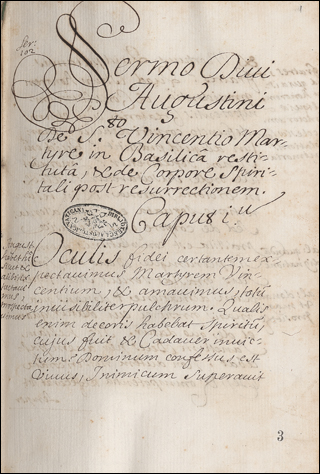 1
Ser.
102
Sermo Divi
Augustini
De S.to Vincentio Mar-
tyre in Basilica resti-
tuta, & de Corpore Spiri-
tali post resurrectionem.
Caput i.
Oculis fidei certantem ex-
pectavimus Martyrem Vin-
centium, & amavimus, totũ
invisibiliter pulchrum. Qualis
enim decoris habebat Spiritũ,
cujus fuit & Cadaver invic-
tum. Dominum confessus est
vivus, Inimicum superavit
3